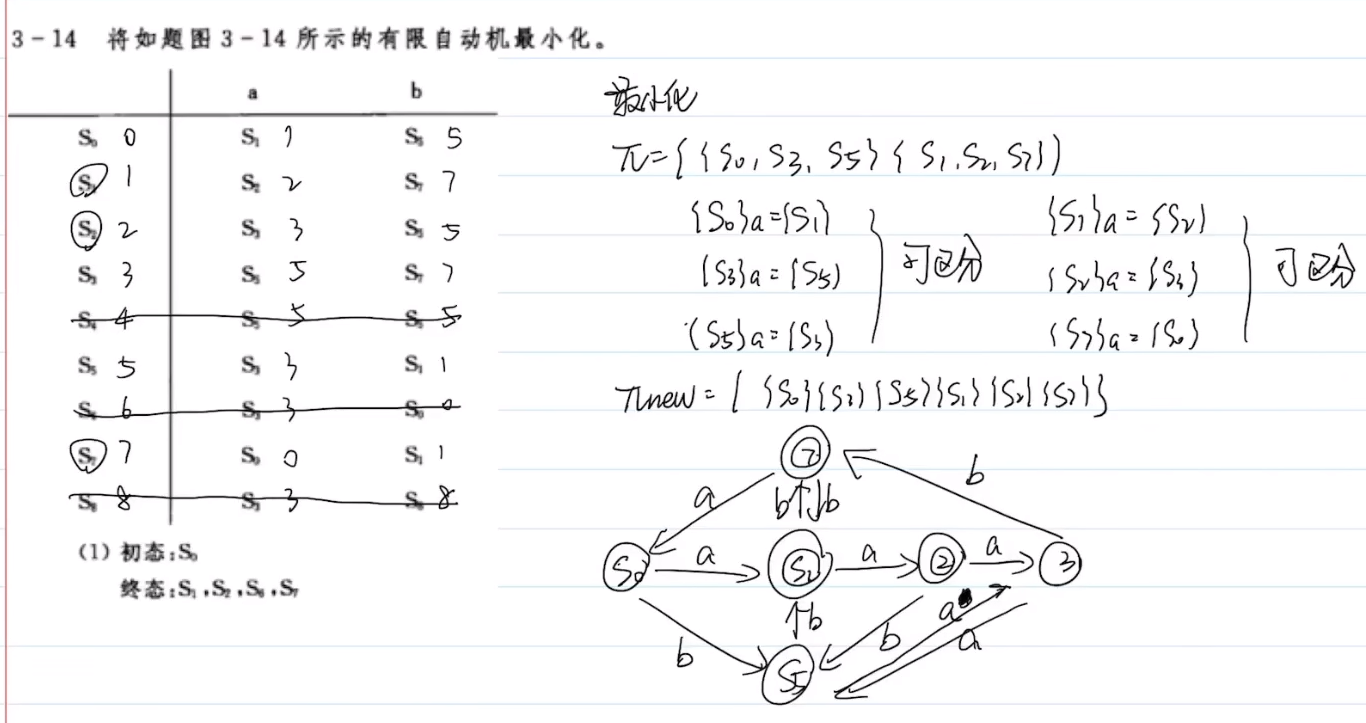 3-14 将如题图3-14所示的有限自动机最小化。
a b
S₀ 0 S₁ 1 S₅ 5
S₁ 1 S₂ 2 S₇ 7
S₂ 2 S₃ 3 S₅ 5
S₃ 3 S₅ 5 S₇ 7
S₄ 4 S₅ 5 S₅ 5
S₅ 5 S₃ 3 S₁ 1
S₆ 6 S₃ 3 S₀ 0
S₇ 7 S₀ 0 S₁ 1
S₈ 8 S₃ 3 S₈ 8
(1) 初态:S₀
终态:S₁,S₂,S₆,S₇
最小化
π={{S₀,S₃,S₅}{S₁,S₂,S₇}}
{S₀}a={S₁}
{S₃}a={S₅}
{S₅}a={S₃}
可区分
{S₁}a={S₂}
{S₂}a={S₃}
{S₇}a={S₀}
可区分
πnew={{S₀}{S₃}{S₅}{S₁}{S₂}{S₇}}
7
a b b b
S₀ a S₁ a 2 a 3
b b b a a
S₅